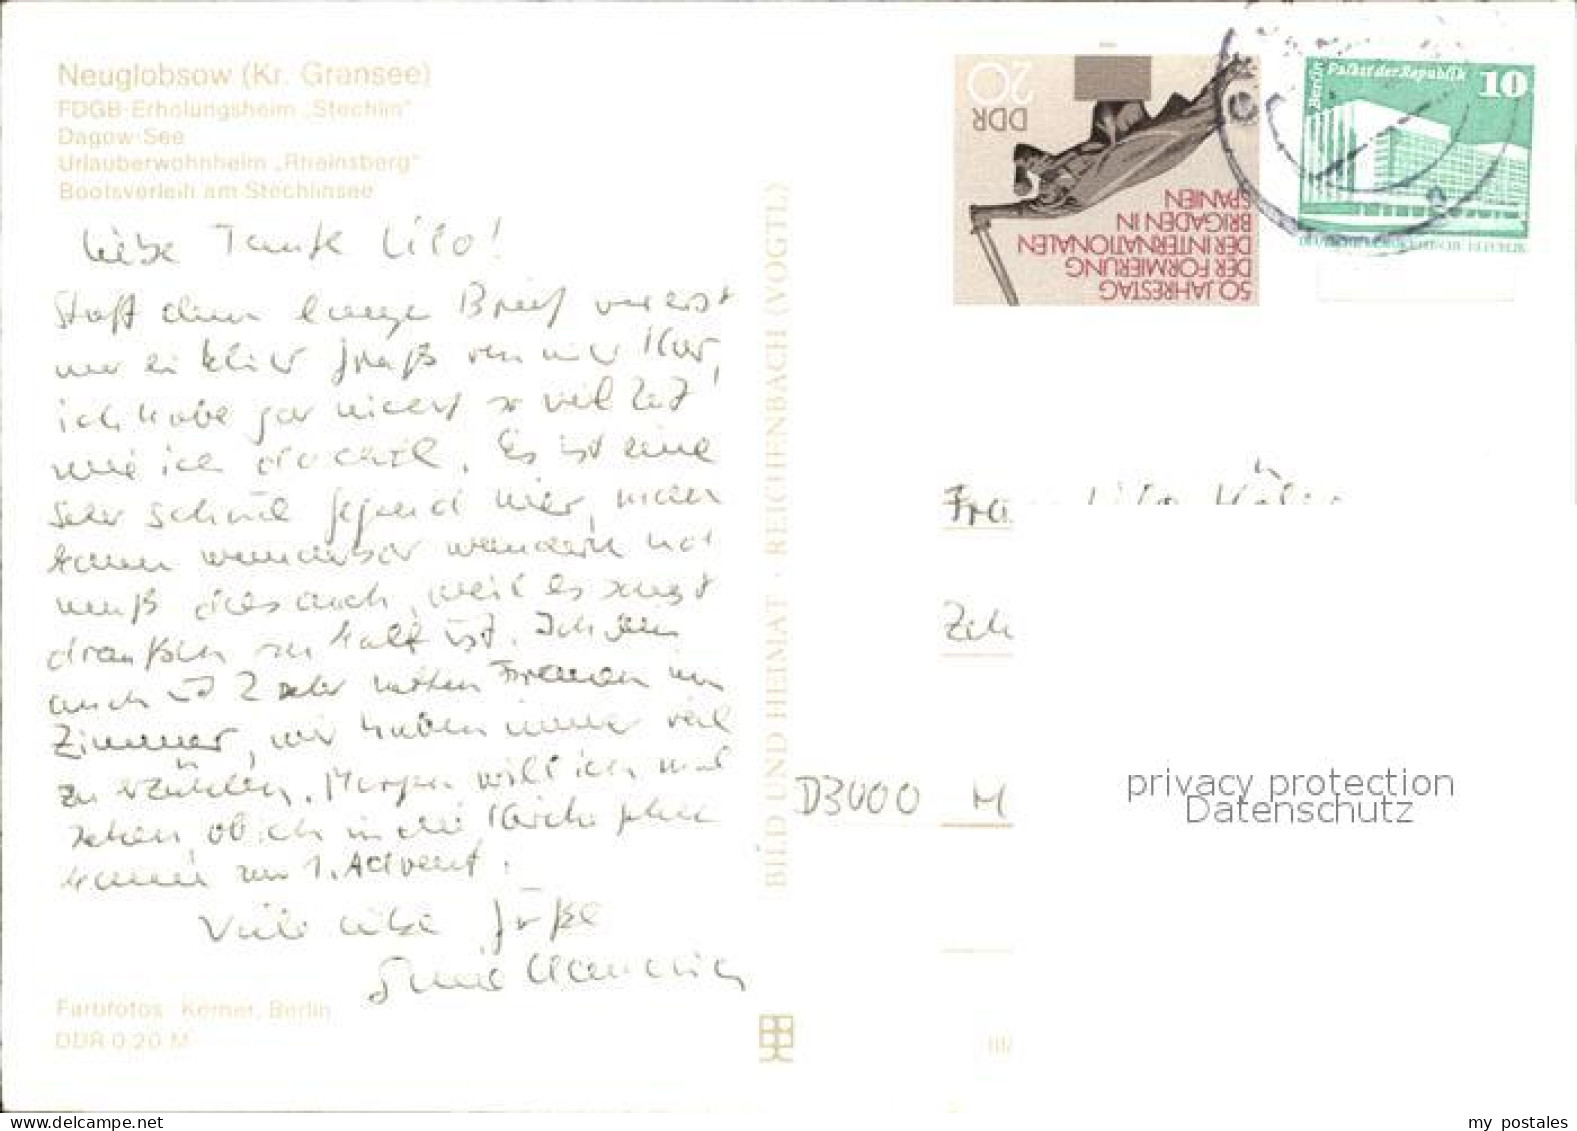 Neuglobsow (Kr. Gransee)
FDGB-Erholungsheim „Stechlin"
Dagow-See
Urlauberwohnheim „Rheinsberg"
Bootsverleih am Stechlinsee
Liebe Tante Lilo!
Statt dem lange Brief vorerst
nur ein kleiner Gruß von mir Kur,
ich habe gar nicht so viel Zeit
wie ich dachte. Es ist eine
sehr schöne Gegend hier, man
kann wunderbar wandern
muß dies auch, weil es sonst
draußen zu kalt ist. Ich
auch 2 sehr netten Frauen im
Zimmer, wir haben immer viel
zu erzählen. Morgen will ich mal
sehen, ob ich in die Kirche gehen
kann zum 1. Advent.
Viele liebe Grüße
Farbfotos: Körner, Berlin
DDR 0,20 M
BILD UND HEIMAT · REICHENBACH (VOGTL)
20
DDR
50. JAHRESTAG
DER FORMIERUNG
DER INTERNATIONALEN
BRIGADEN IN
SPANIEN
Berlin
Palast der Republik
10
DEUTSCHE DEMOKRATISCHE REPUBLIK
Frau Lilo
D3000 M
privacy protection
Datenschutz
III/
my postales